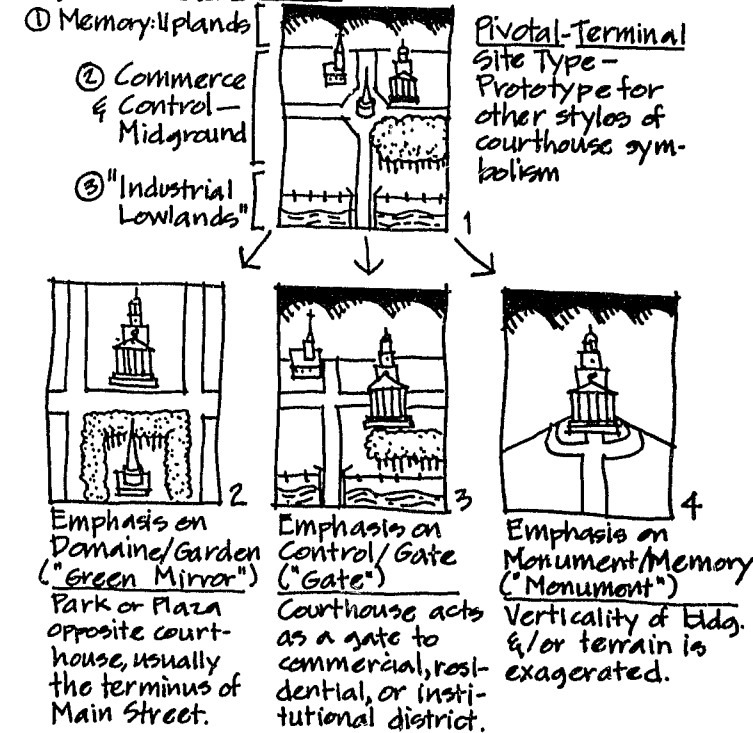 ① Memory: Uplands
② Commerce
& Control—
Midground
③ "Industrial
Lowlands"
1
Pivotal-Terminal
Site Type—
Prototype for
other styles of
courthouse sym-
bolism
2
Emphasis on
Domaine/Garden
("Green Mirror")
Park or Plaza
opposite court-
house, usually
the terminus of
Main Street.
3
Emphasis on
Control/Gate
("Gate")
Courthouse acts
as a gate to
commercial, resi-
dential, or insti-
tutional district.
4
Emphasis on
Monument/Memory
("Monument")
Verticality of bldg.
&/or terrain is
exagerated.